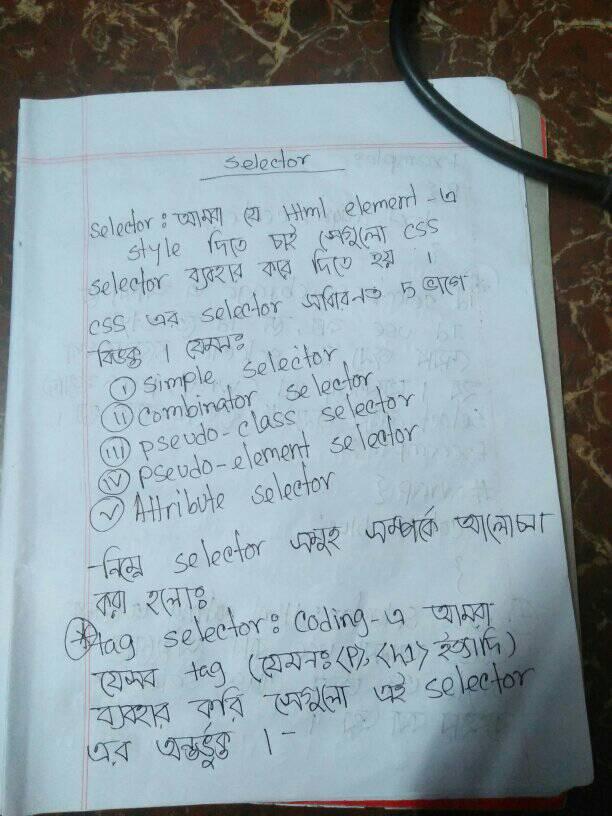 Selector
Selector: আমরা যে Html element-এ
style দিতে চাই সেগুলো CSS
selector ব্যবহার করে দিতে হয় ।
CSS এর selector সাধারনত ৫ ভাগে
বিভক্ত । যেমনঃ
(i) Simple selector
(ii) Combinator selector
(iii) pseudo-class selector
(iv) pseudo-element selector
(v) Attribute selector
নিম্নে selector সমুহ সম্পর্কে আলোচনা
করা হলোঃ
* tag selector: Coding-এ আমরা
যেসব tag (যেমনঃ <P>, <h1> ইত্যাদি)
ব্যবহার করি সেগুলো এই selector
এর অন্তর্ভুক্ত । -